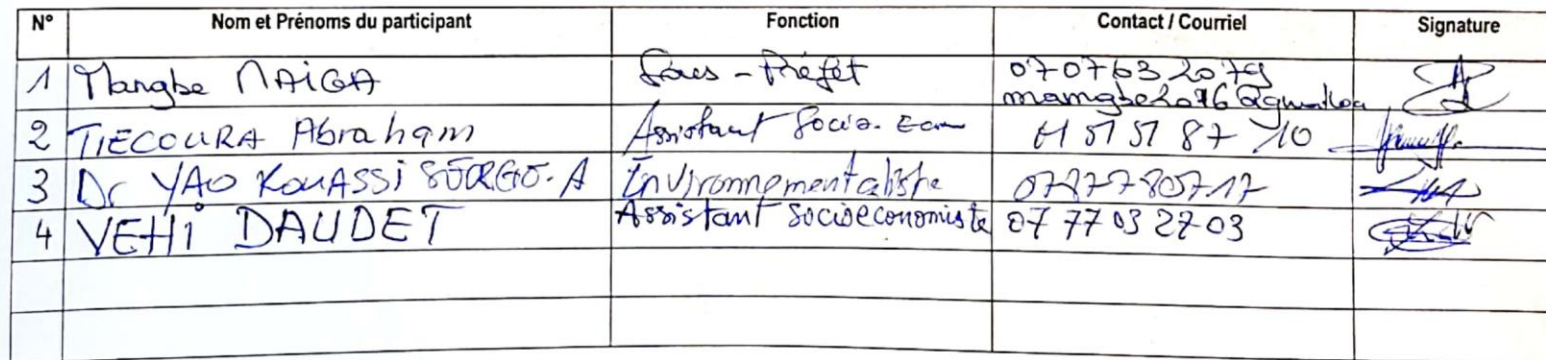 N° Nom et Prénoms du participant Fonction Contact / Courriel Signature
1 Mangbe MAIGA Sous-Préfet 0707632079
2 TIECOURA Abraham Assistant Socio. Econ 01 51 51 87 10
3 Dr YAO KOUASSI SERGE. A Environnementaliste
4 VEHI DAUDET Assistant socioeconomiste 07 77 03 27 03